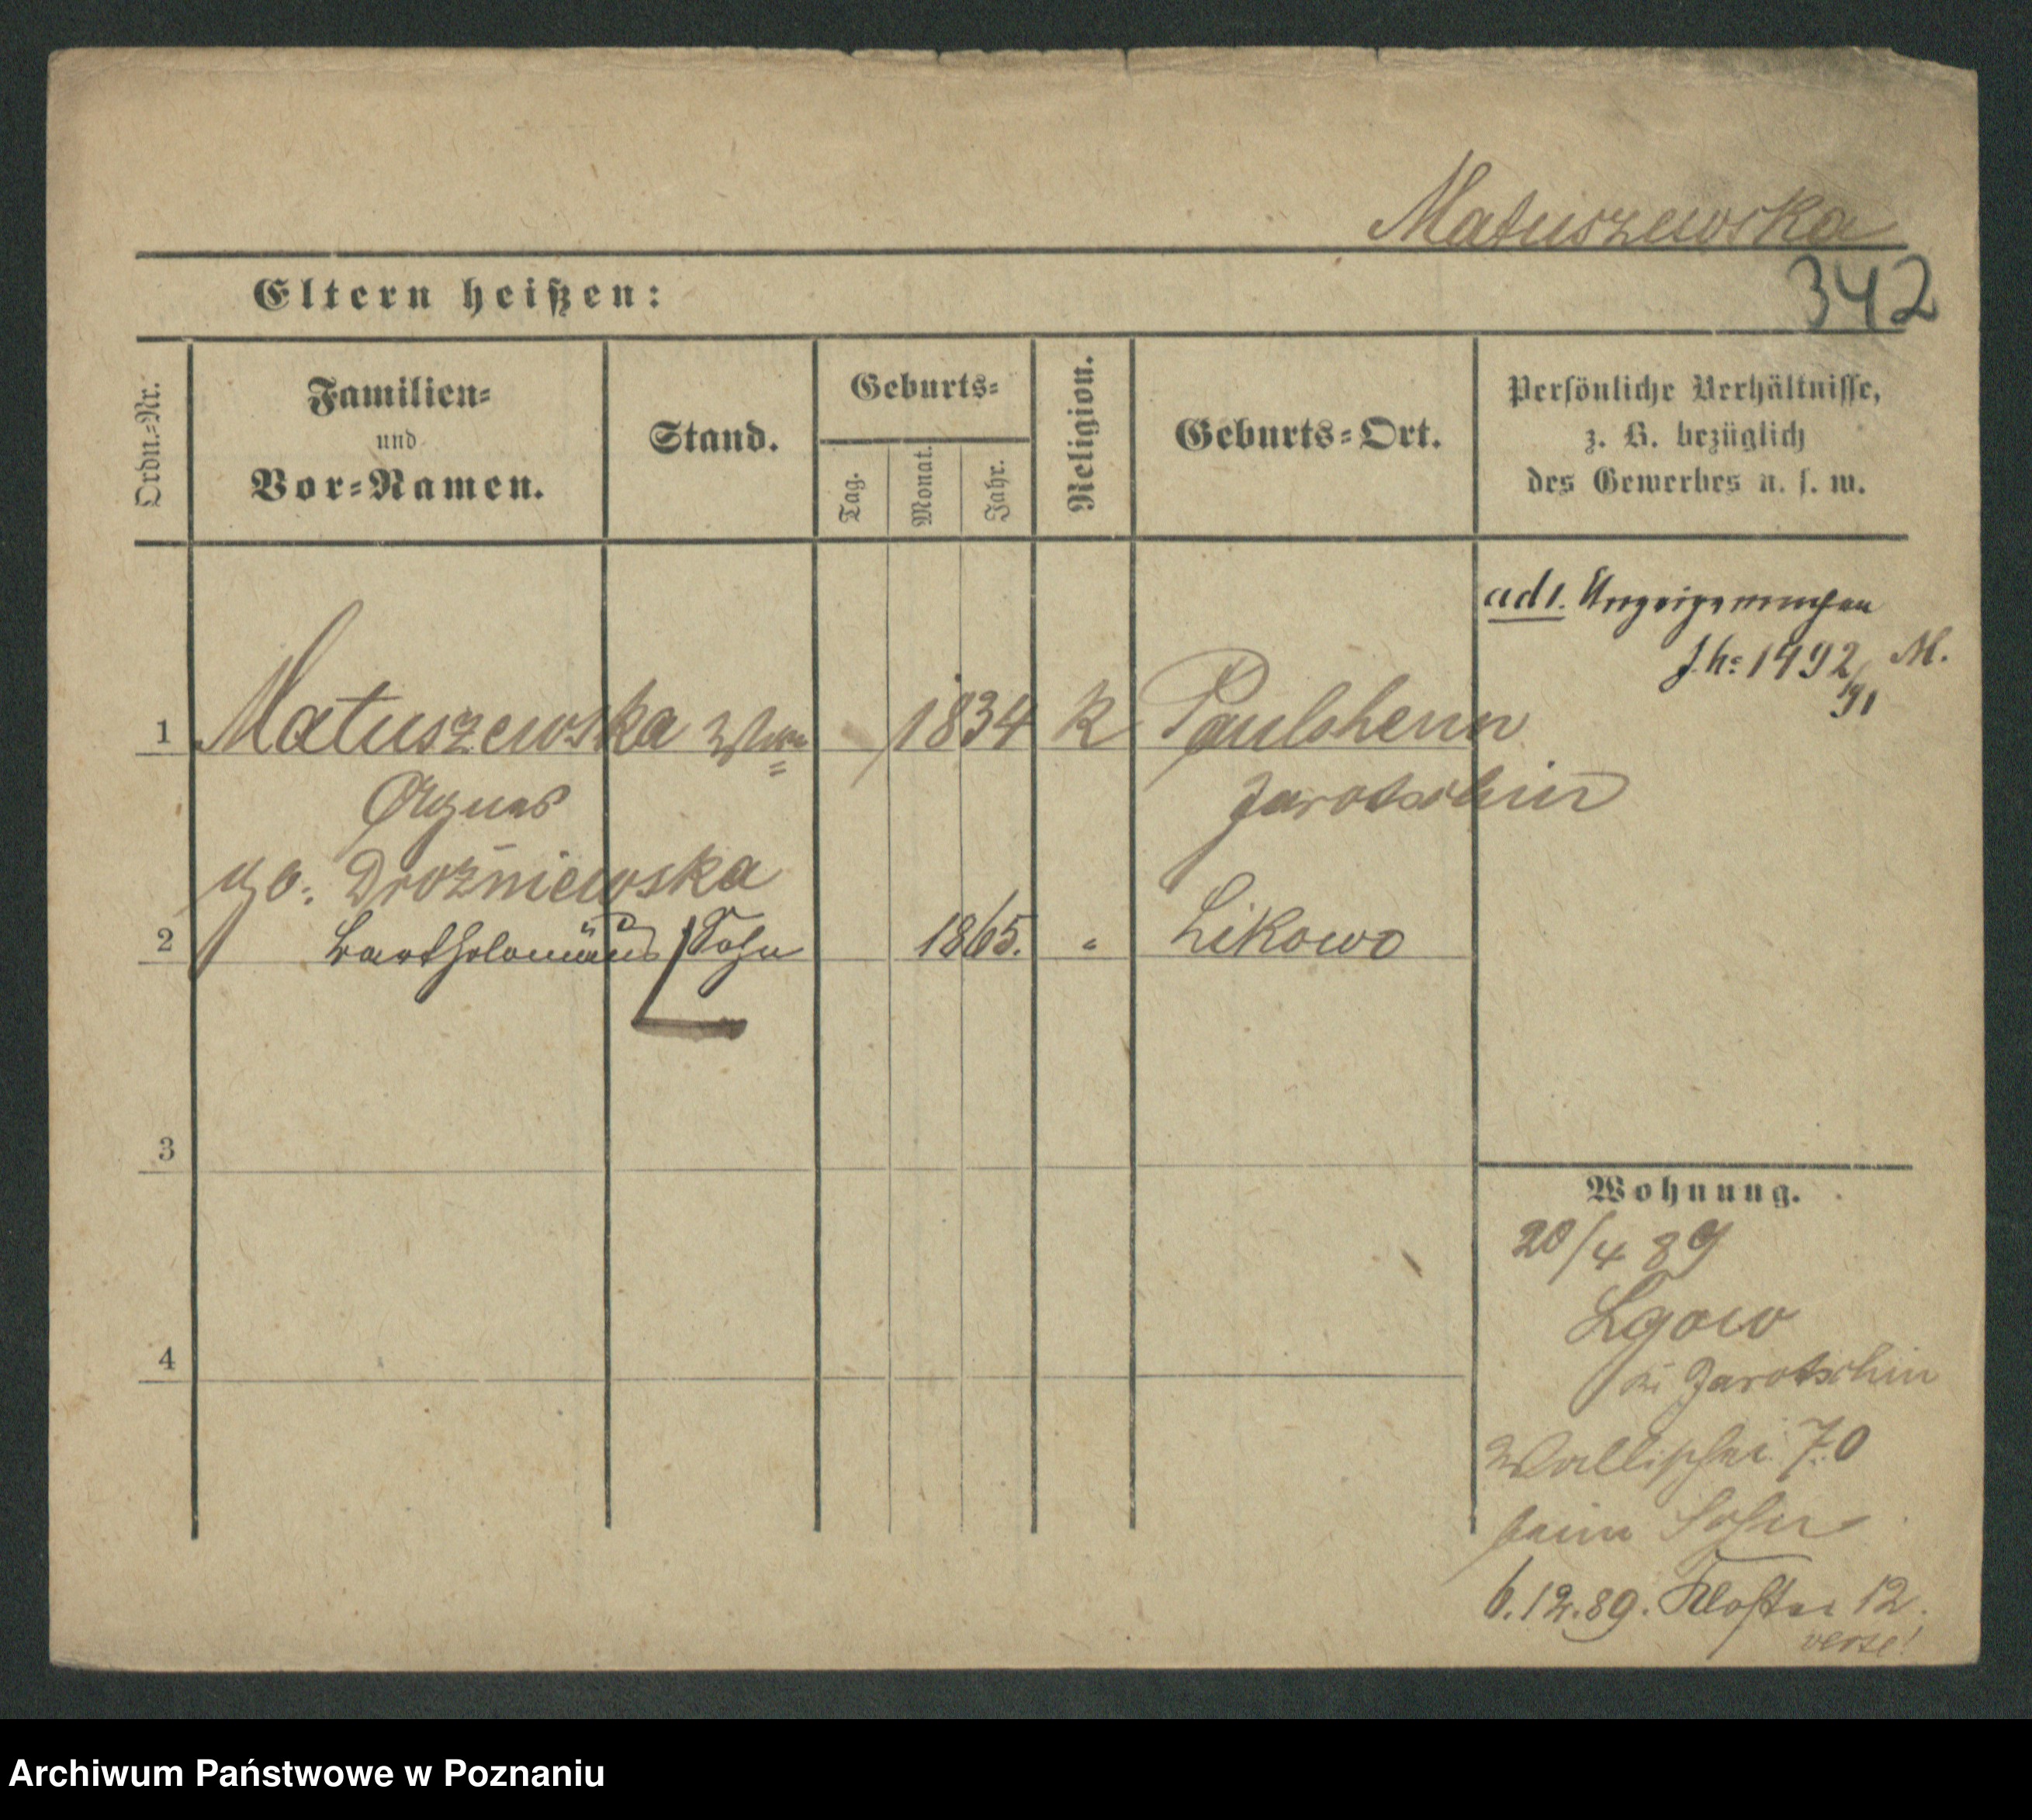 Matuszewska
342
Eltern heißen:
Ordn.-Nr.
Familien-
und
Vor-Namen.
Stand.
Geburts-
Tag.
Monat.
Jahr.
Religion.
Geburts-Ort.
Persönliche Verhältnisse,
z. B. bezüglich
des Gewerbes u. s. w.
ad 1.
1492 M.
91
1 Matuszewska 1834 K
Agnes Jarotschin
geb. Droźniewska
2 Bartholomäus Sohn 1865. " Likowo
3
4
Wohnung.
20/4 89
Lgowo
Jarotschin
Wallischei 70
beim Sohn
6.12.89. Kloster 12.
verte!
Archiwum Państwowe w Poznaniu